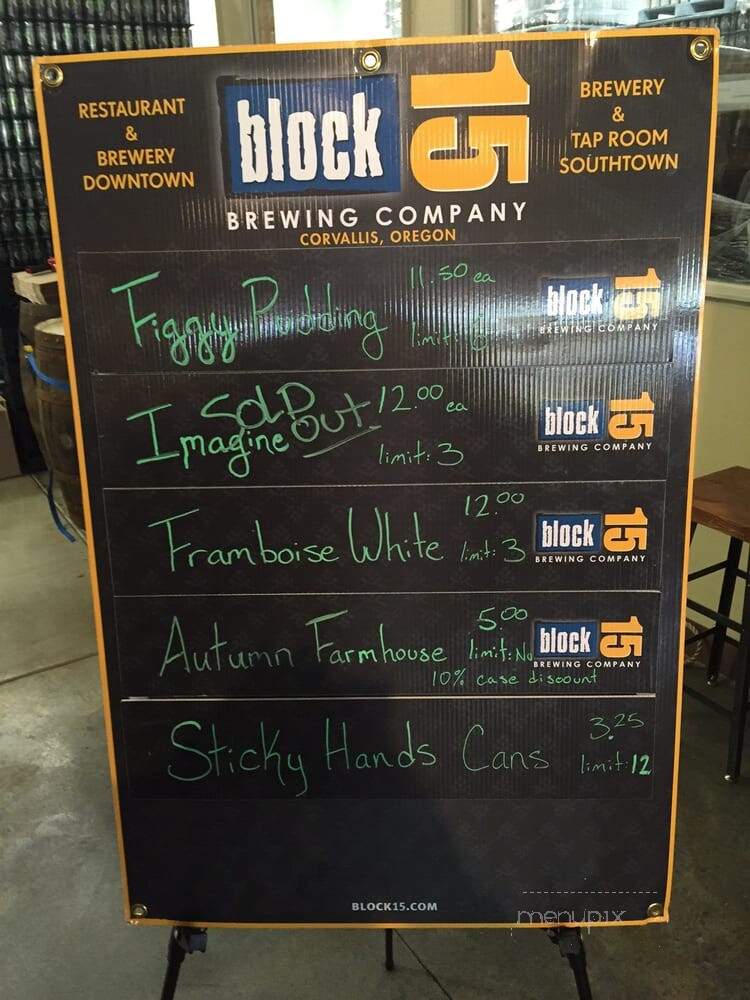 RESTAURANT
&
BREWERY
DOWNTOWN
block 15
BREWING COMPANY
CORVALLIS, OREGON
BREWERY
&
TAP ROOM
SOUTHTOWN
Figgy Pudding 11.50 ea
limit:
block 15
BREWING COMPANY
Imagine SOLD OUT 12.00 ea
limit: 3
block 15
BREWING COMPANY
12.00
Framboise White limit: 3
block 15
BREWING COMPANY
5.00
Autumn Farmhouse limit: No
10% case discount
block 15
BREWING COMPANY
Sticky Hands Cans 3.25
limit: 12
BLOCK15.COM
menupix